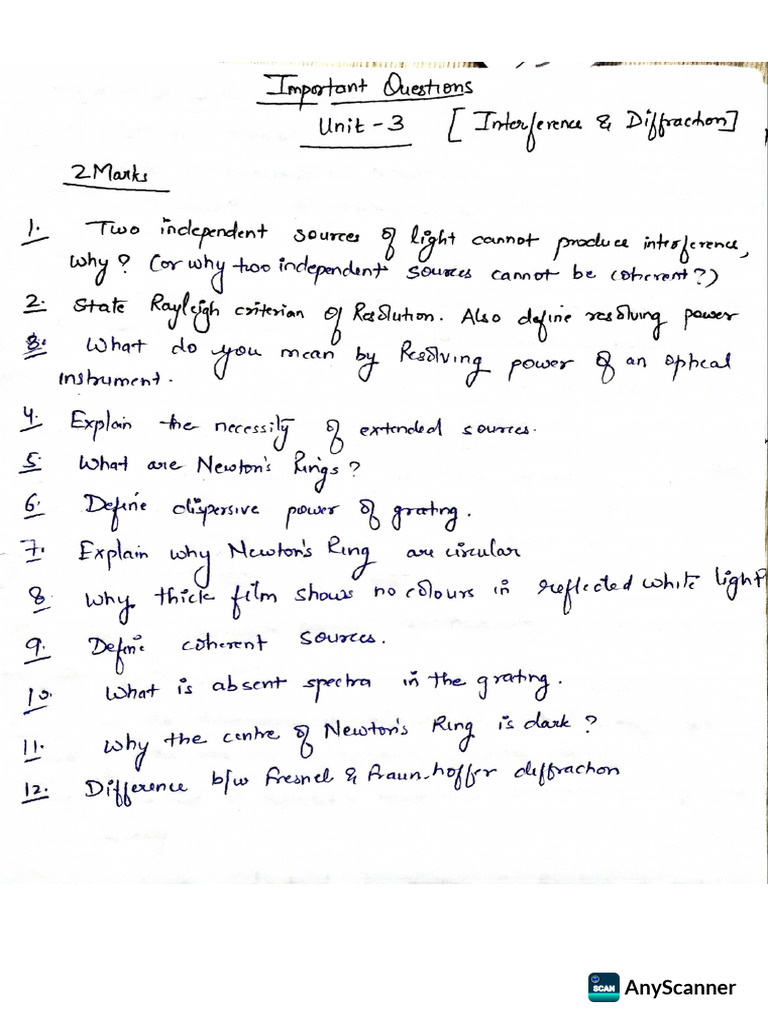 Important Questions
Unit - 3 [Interference & Diffraction]
2 Marks
1. Two independent sources of light cannot produce interference,
why? (or why two independent sources cannot be coherent?)
2. State Rayleigh criterian of Resolution. Also define resolving power
3. What do you mean by Resolving power of an optical
instrument.
4. Explain the necessity of extended sources.
5. What are Newton's Rings?
6. Define dispersive power of grating.
7. Explain why Newton's Ring are circular
8. Why thick film shows no colours in reflected white light
9. Define coherent sources.
10. What is absent spectra in the grating.
11. Why the centre of Newton's Ring is dark?
12. Difference b/w Fresnel & Fraun-hoffer diffraction
SCAN AnyScanner